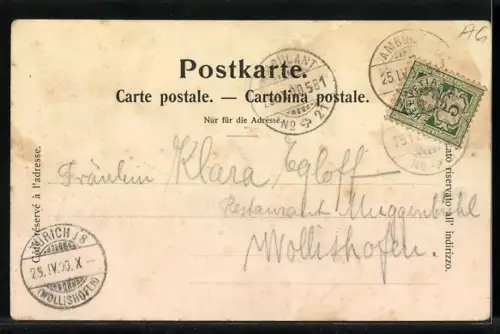 AG
Postkarte.
Carte postale. — Cartolina postale.
Nur für die Adresse.
Côté réservé à l'adresse.
lato riservato all' indirizzo.
Fräulein Klara Egloff
Restaurant Muggenbühl
Wollishofen.
AMBULANT
No 21
AMBULANT
25 IV
5
ZÜRICH 18
25. IV. 00. X —
(WOLLISHOFEN)